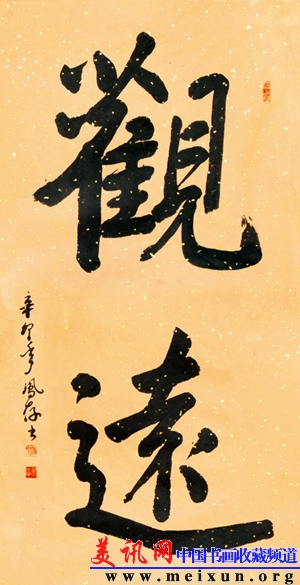 觀遠
辛卯季鳳存書
美讯网 中国书画收藏频道
www.meixun.org